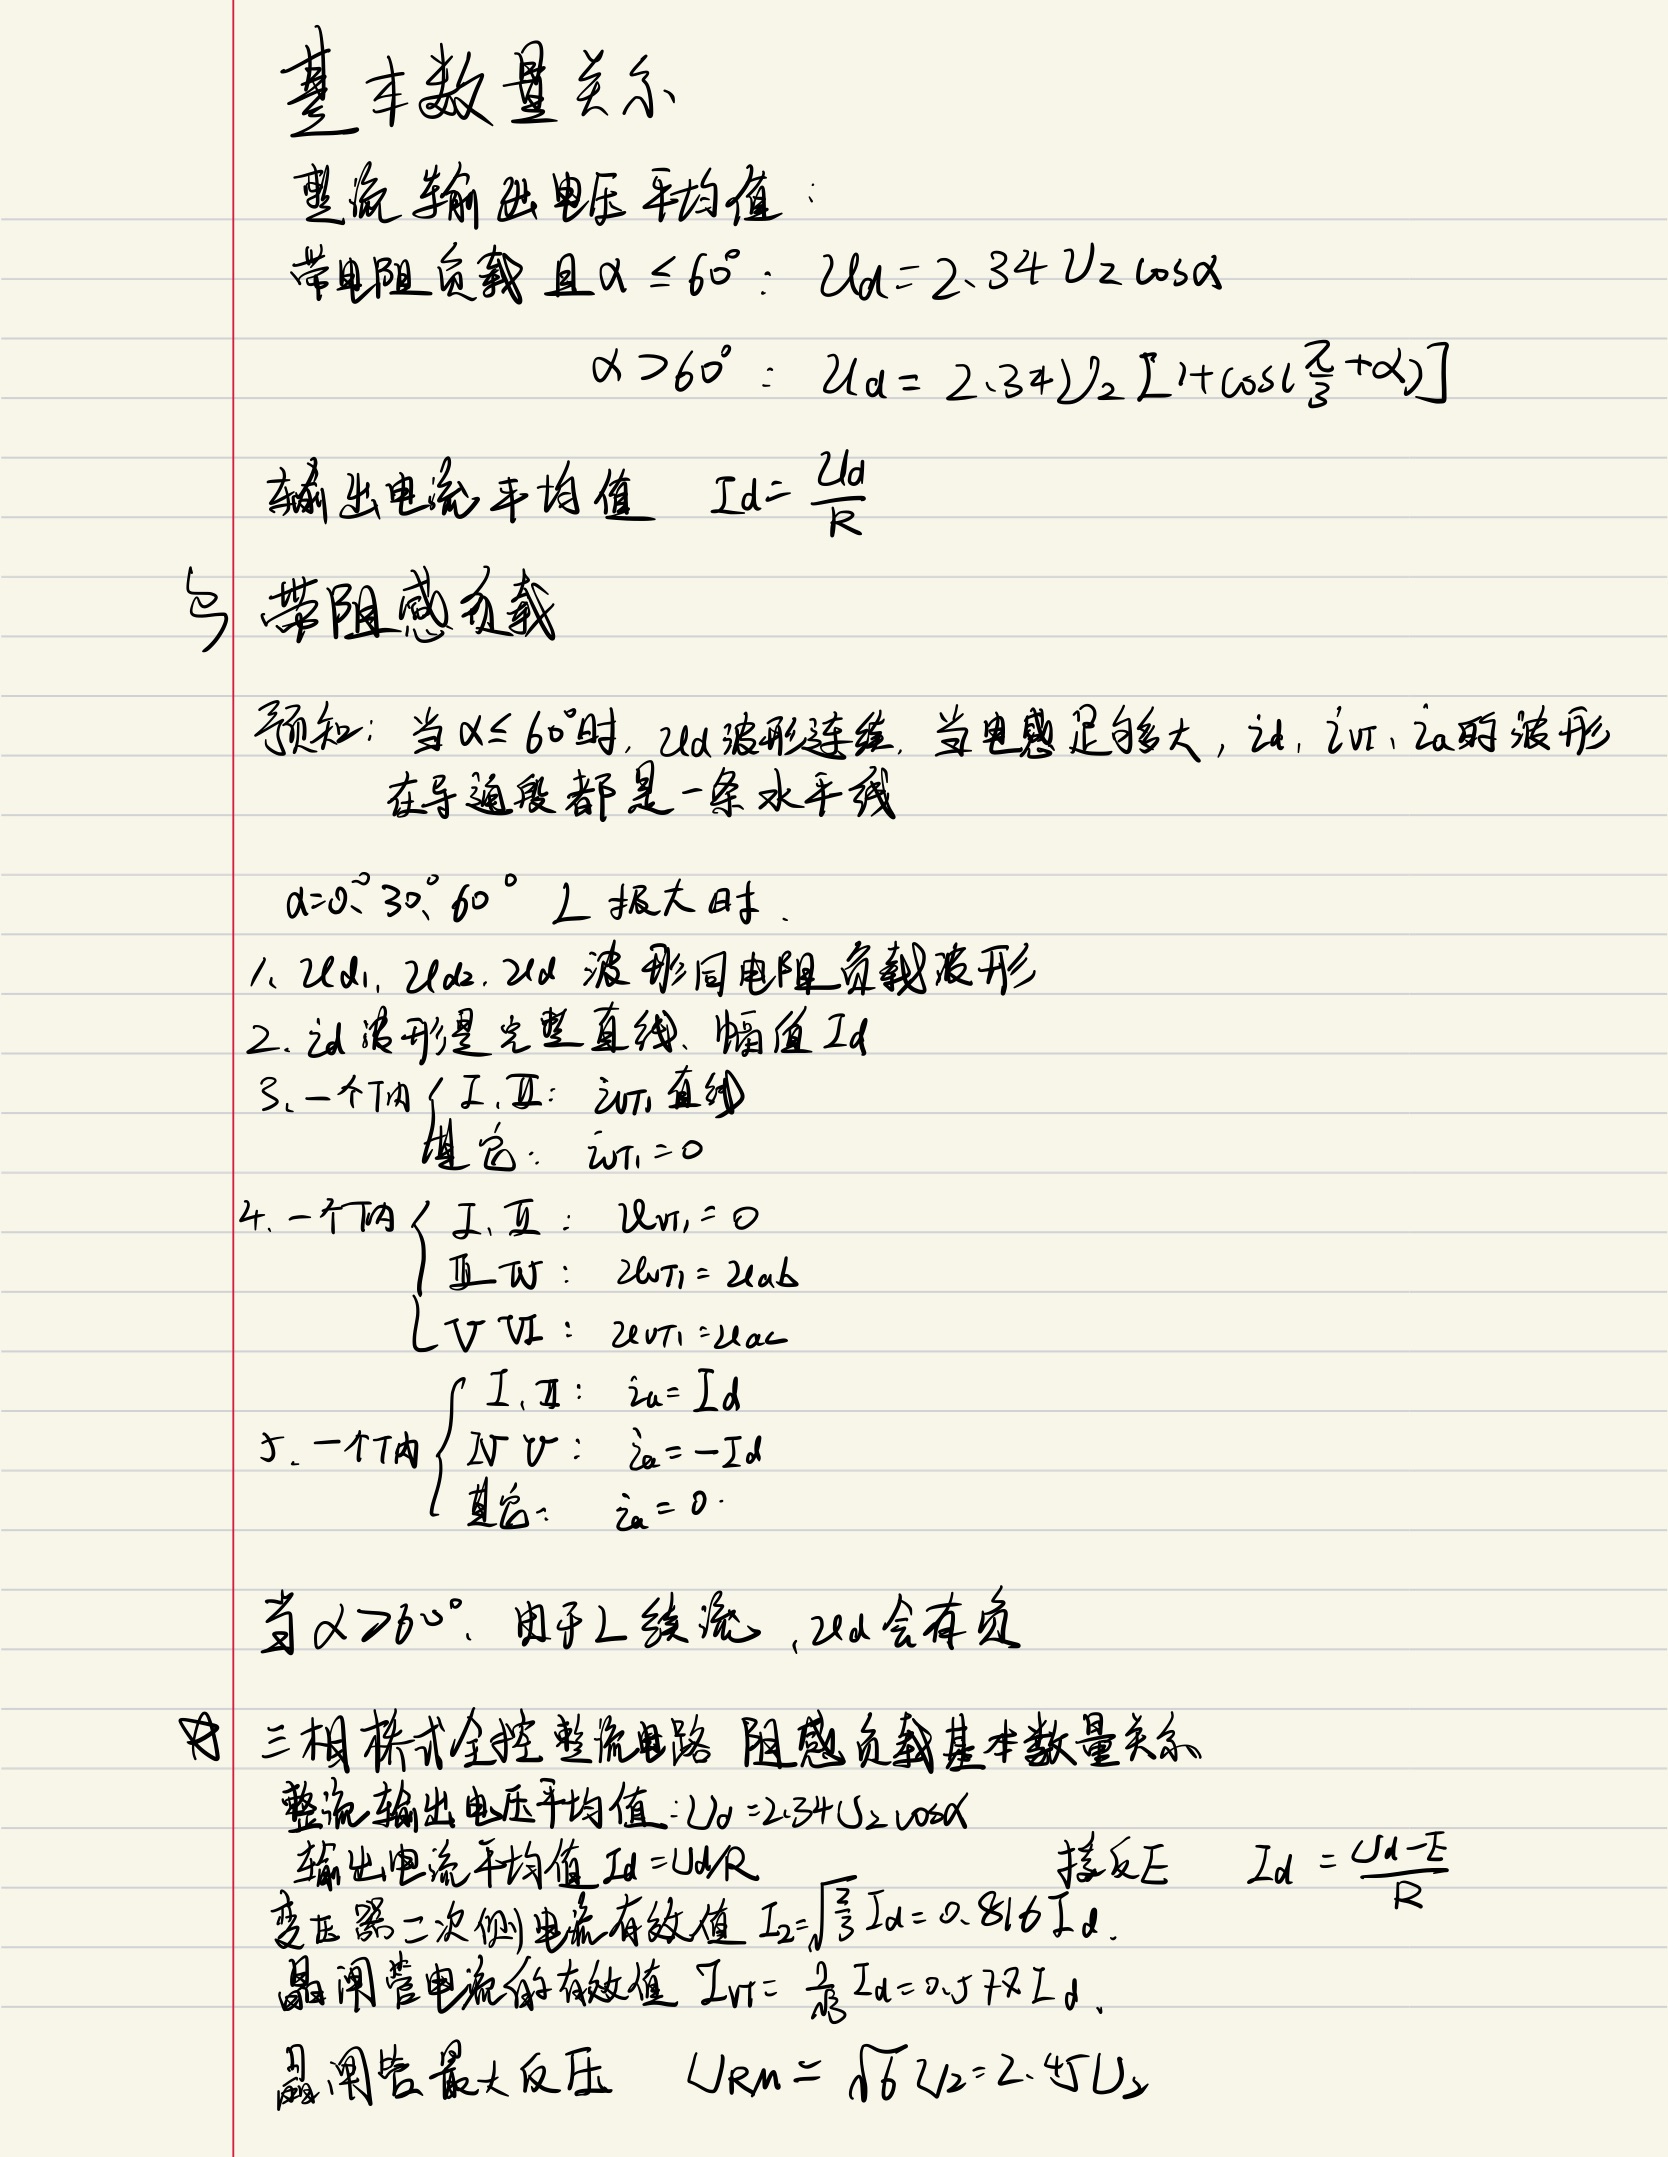 基本数量关系
整流输出电压平均值：
带电阻负载且α≤60°： Ud=2.34U2cosα
α>60°： Ud=2.34U2[1+cos(π/3+α)]
输出电流平均值 Id=Ud/R
5 带阻感负载
预知：当α≤60°时，ud波形连续，当电感足够大，id，iVT、ia的波形
在导通段都是一条水平线
α=0°、30°、60° L极大时.
1、ud1，ud2，ud 波形同电阻负载波形
2. id波形是完整直线、幅值Id
3、一个T内{ I、Ⅱ： iVT1直线
其它： iVT1=0
4、一个T内{ I、Ⅱ： uVT1=0
Ⅲ Ⅳ： uVT1=uab
Ⅴ Ⅵ： uVT1=uac
5. 一个T内{ I、Ⅱ： ia=Id
Ⅳ Ⅴ： ia=-Id
其它： ia=0.
当α>60°、由于L续流，ud会有负
☆ 三相桥式全控整流电路 阻感负载基本数量关系
整流输出电压平均值：Ud=2.34U2cosα
输出电流平均值 Id=Ud/R 接反E Id=(Ud-E)/R
变压器二次侧电流有效值 I2=√(2/3)Id=0.816Id.
晶闸管电流的有效值 IVT=1/√3 Id=0.577Id、
晶闸管最大反压 URM=√6U2=2.45U2